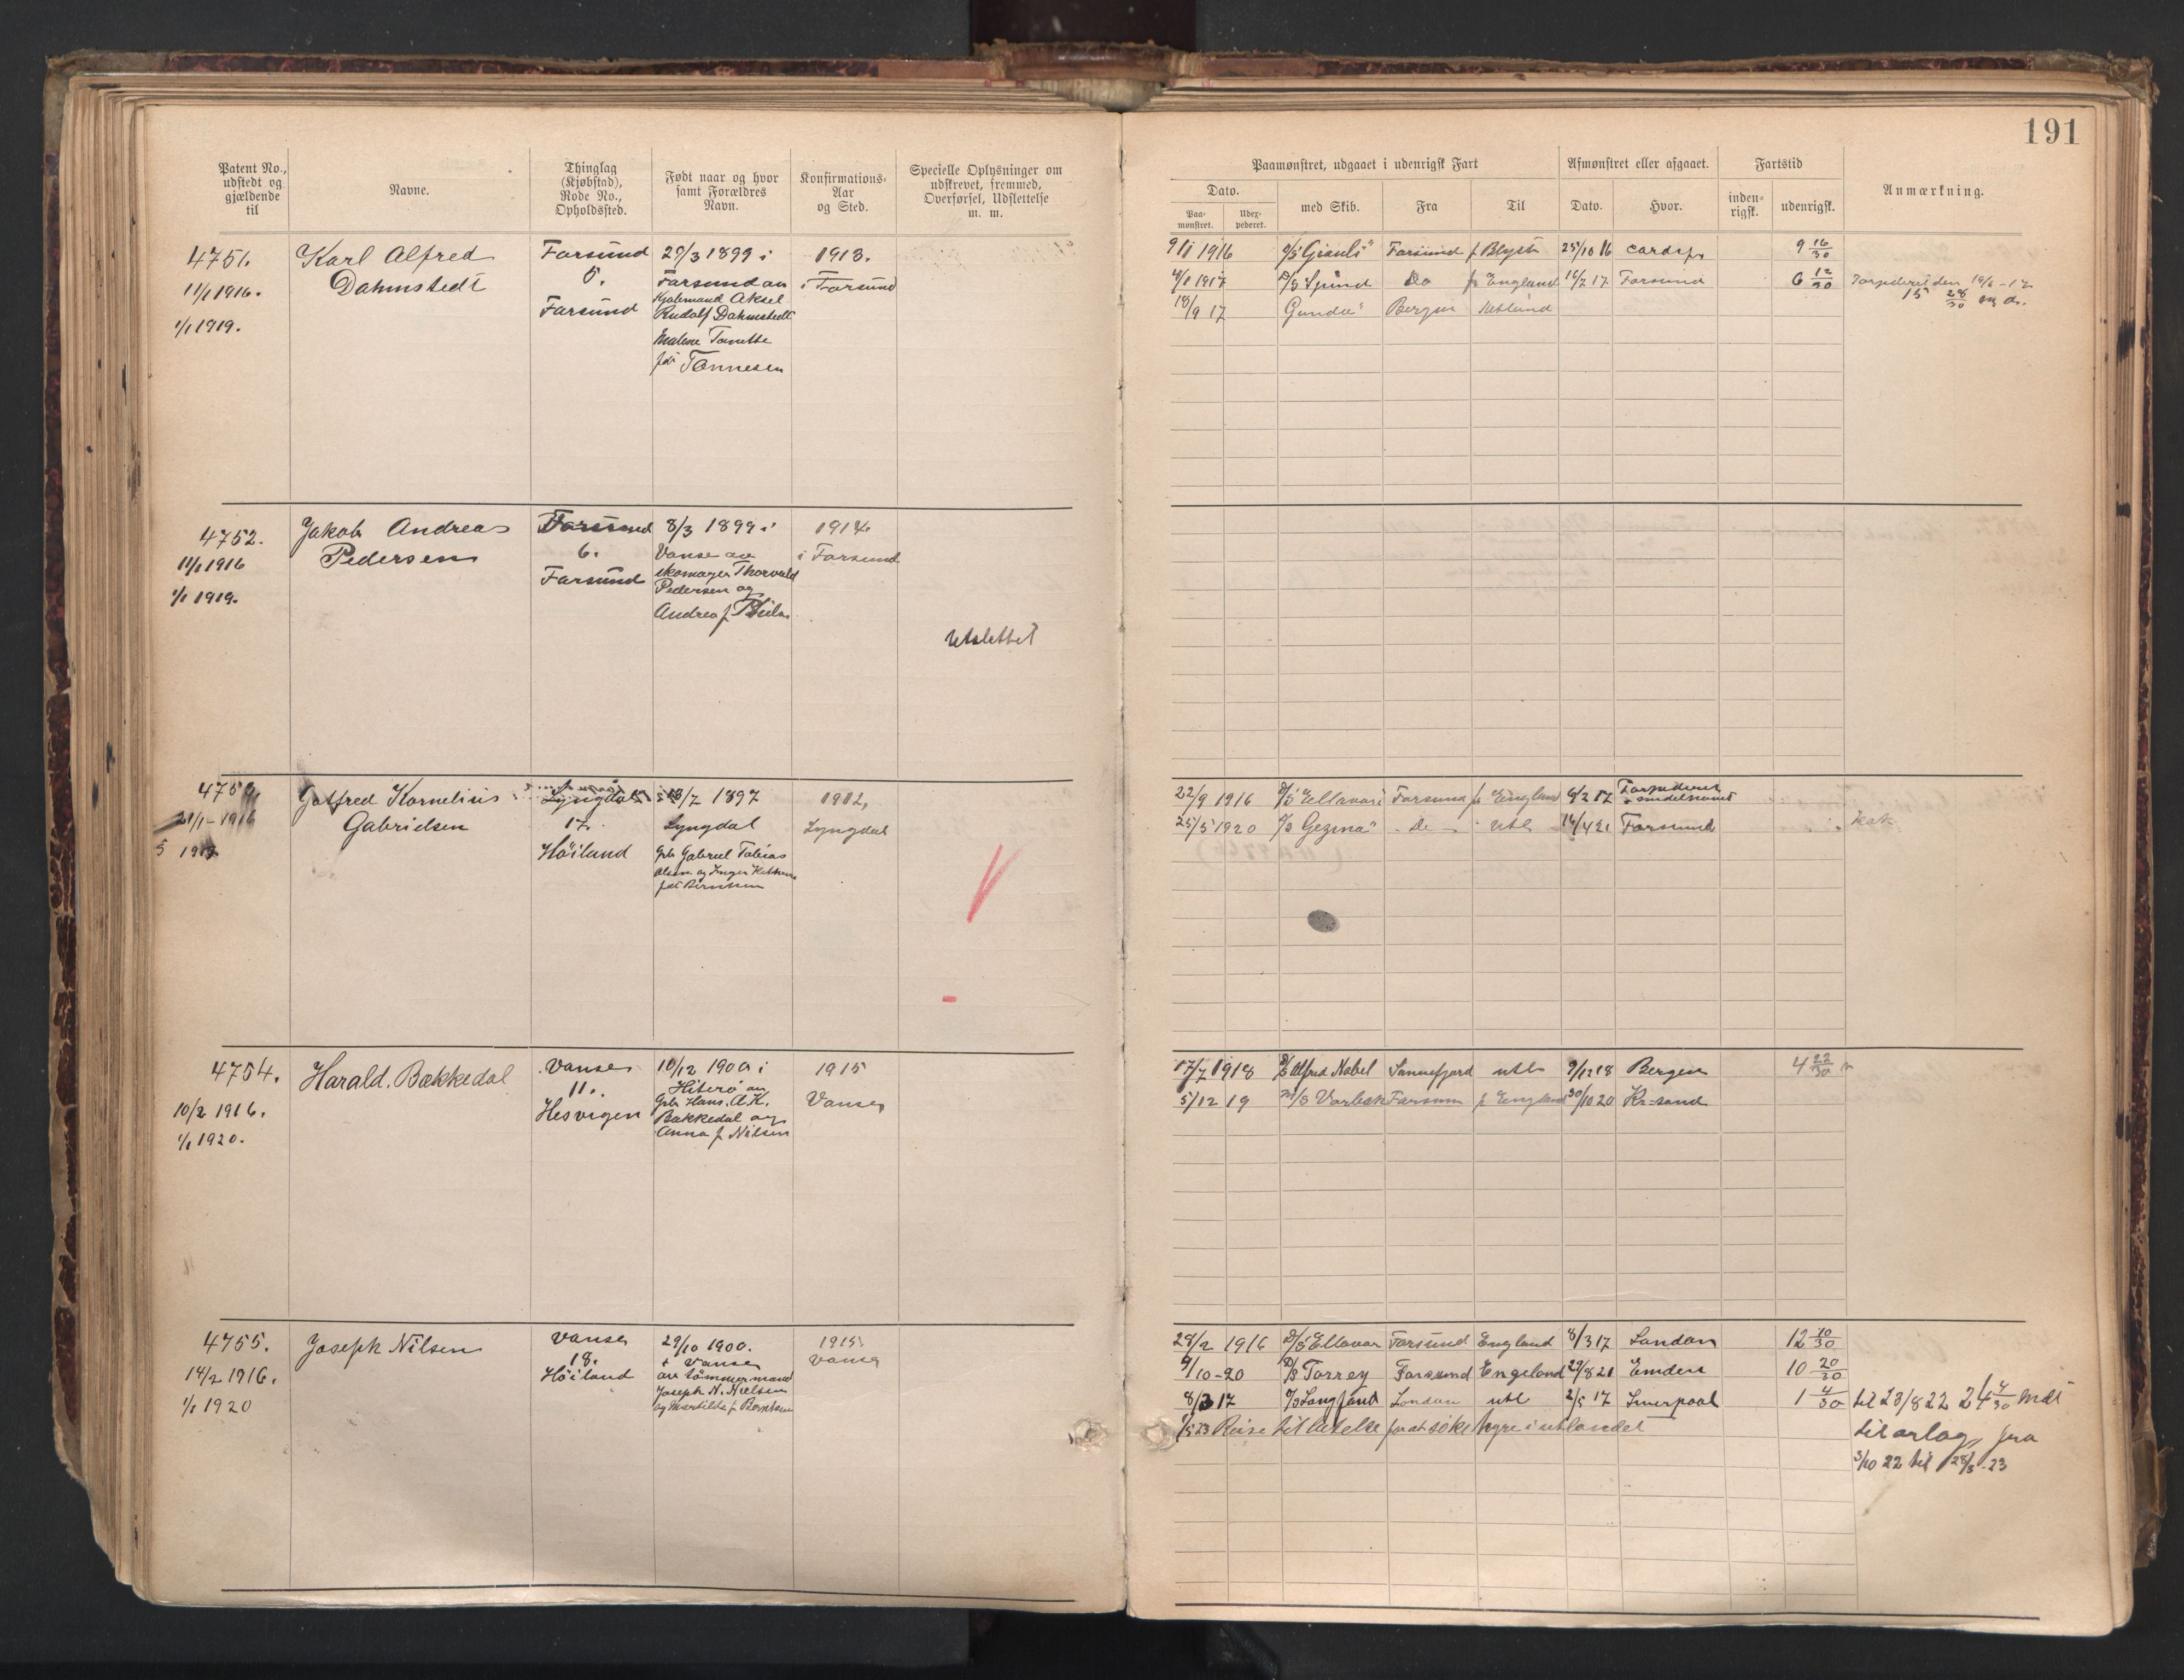 191
Patent No., udstedt og gjældende til
Navne.
Thinglag (Kjøbstad), Rode No., Opholdssted.
Født naar og hvor samt Forældres Navn.
Konfirmations-Aar og Sted.
Specielle Oplysninger om udskrevet, fremmed, Overførsel, Udslettelse m. m.
Paamønstret, udgaaet i udenrigsk Fart
Afmønstret eller afgaaet.
Fartstid
Anmærkning.
Dato.
Paa-mønstret.
Udex-pederet.
med Skib.
Fra
Til
Dato.
Hvor.
inden-rigsk.
udenrigsk.
4751.
11/1 1916.
1/1 1919.
Karl Alfred
Dahmstedt
Farsund
5.
Farsund
29/3 1899 i
Farsund av
Rudolf Dahmstedt
Malene Tonette
født Tønnesen
1913.
i Farsund
9/1 1916 Farsund f Blyth 25/10 16 9 16/30
4/1 1917 D/S Spind Do f England 16/2 17 Farsund 6 12/30
18/9 17 Gunda" Bergen Utland
4752.
11/1 1916
1/1 1919.
Jakob Andreas
Pedersen
Farsund
6.
Farsund
8/3 1899 i
Vanse av
skomager Thorvald
Pedersen og
Andrea f.
1914
i Farsund
Utslettet
21/1 - 1916
Gotfred Kornelius
Gabrielsen
Lyngdal
17.
Höiland
/7 1897
Lyngdal
Gbr Gabriel Tobias
Olsen og Inger
1912,
Lyngdal
22/9 1916 Farsund f England 6/2 17
25/5 1920 Gezina" Do Utl 14/4 21 Farsund
4754.
10/2 1916.
1/1 1920.
Harald. Bakkedal
Vanse
11.
Hesvigen
10/12 1900 i
Hiterö av
Gbr Hans. A.K.
Bakkedal og
Anna f Nilsen
1915
Vanse
17/7 1918 D/S Alfred Nobel Sannefjord utl 9/12 18 Bergen 4 22/30 m
5/12 19 Farsun f England 30/10 20 Kr-sand
4755.
14/2 1916.
1/1 1920
Joseph Nilsen
Vanse
18.
Höiland
29/10 1900.
i Vanse
av tömmermand
Joseph N. Nielsen
1915.
Vanse
28/2 1916 D/S Ellavan Farsund England 8/3 17 London 12 10/30
9/10-20 D/S Torrey Farsund Engeland 29/8 21 Emden 10 20/30
8/3 17 London utl 2/5 17 Liverpool 1 4/30
til 23/8 22 24 4/30 Mdr
1/5 23 Reise tilladelse for at söke hyre i utlandet
til orlog, fra
3/10 22 til 28/3-23